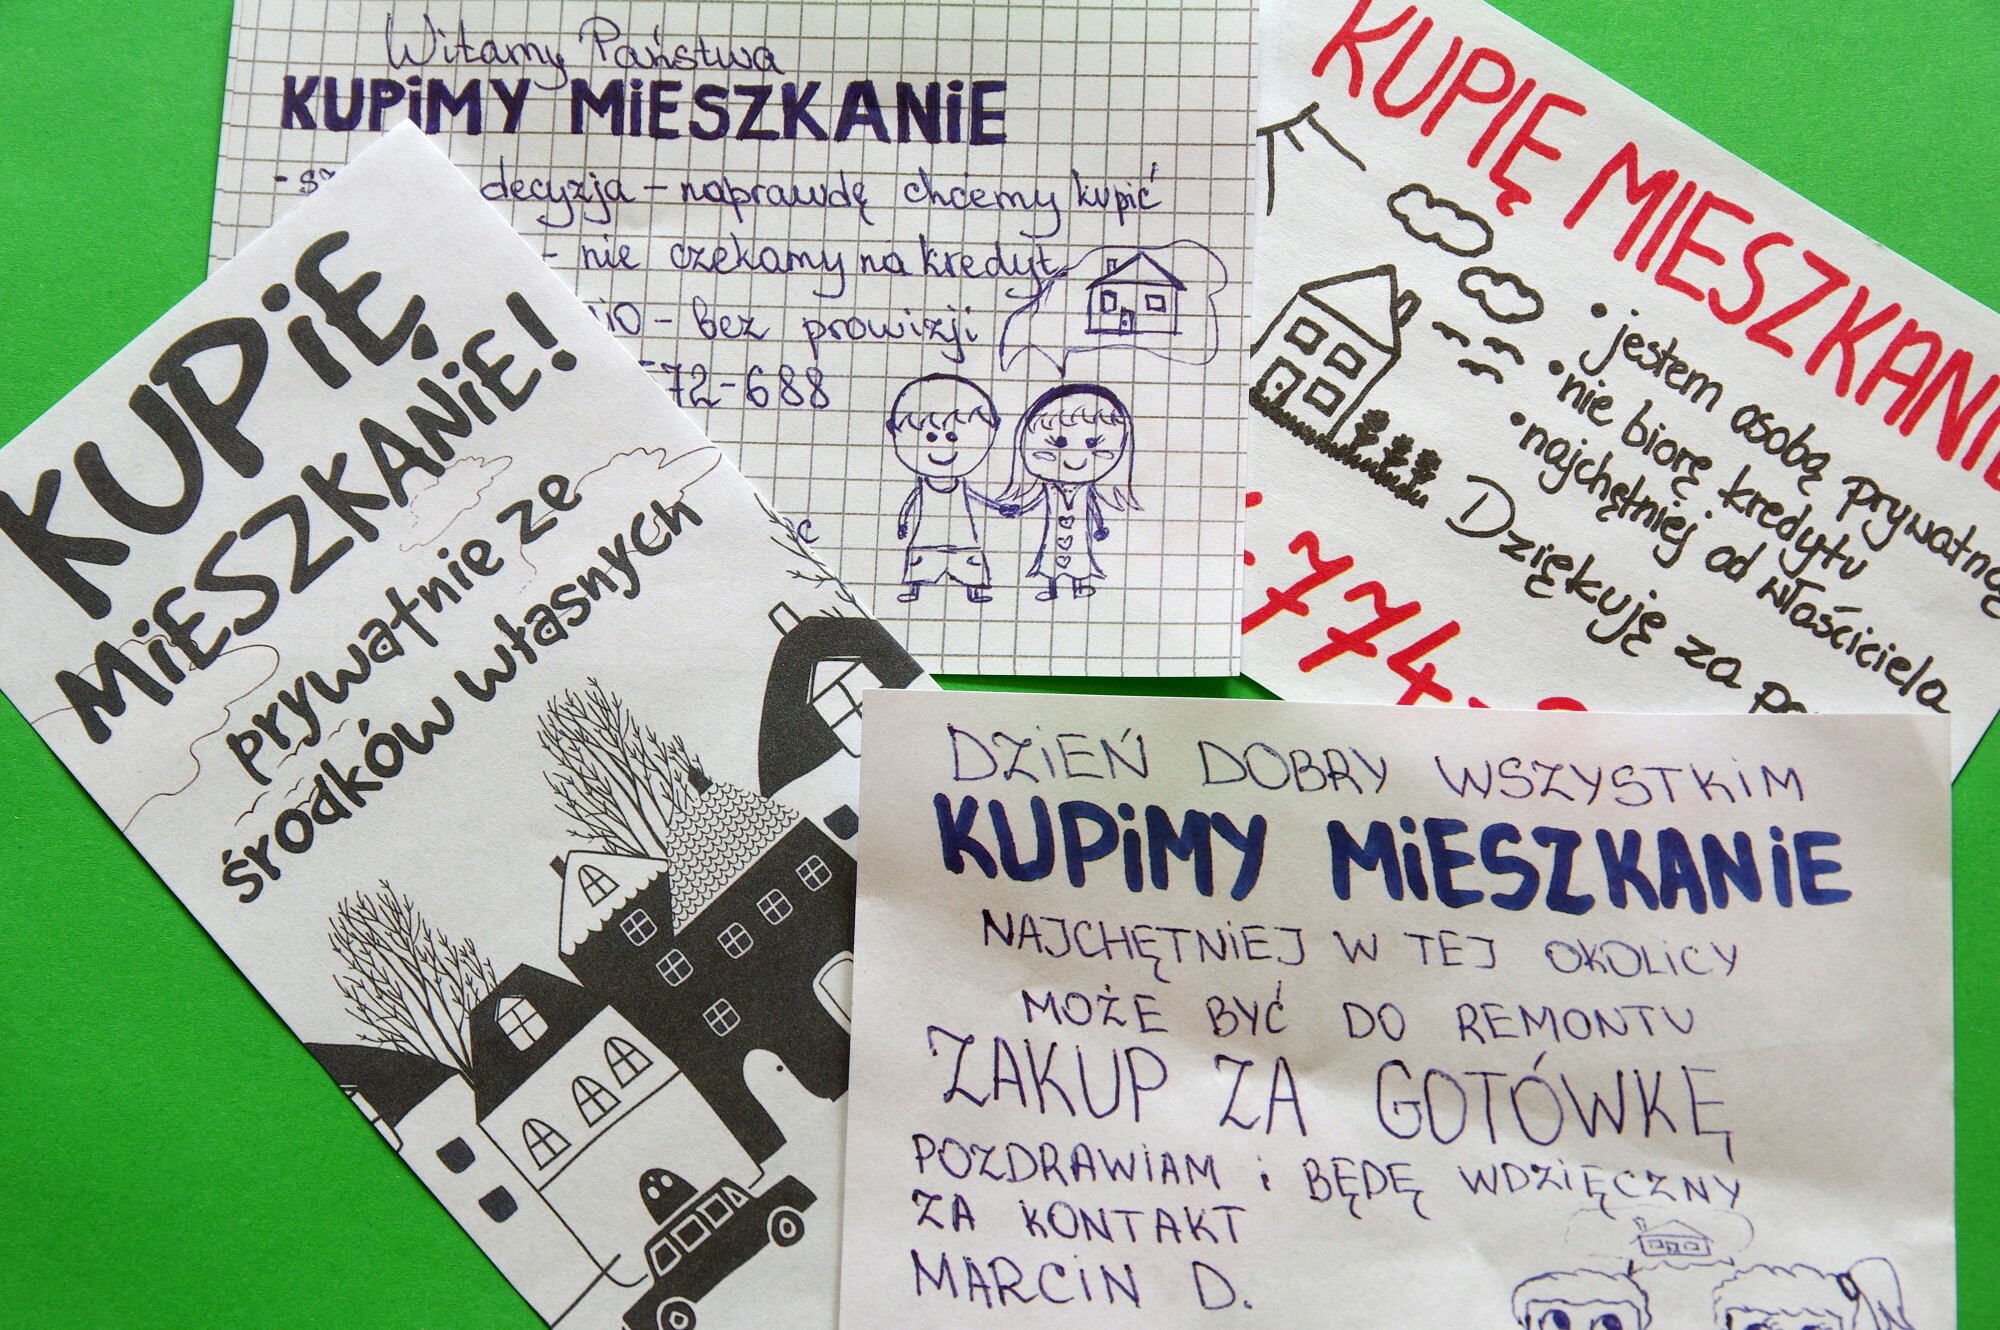 Witamy Państwa
KUPiMY MiESZKANiE
decyzja - naprawdę chcemy kupić
- nie czekamy na kredyt
- bez prowizji
572-688
KUPIĘ MIESZKANIE
• jestem osobą prywatną
• nie biorę kredytu
• najchętniej od właściciela
Dziękuję za
774
KUPiĘ
MiESZKANiE!
prywatnie ze
środków własnych
DZiEŃ DOBRY WSZYSTKiM
KUPiMY MiESZKANiE
NAJCHĘTNiEJ W TEJ OKOLiCY
MOŻE BYĆ DO REMONTU
ZAKUP ZA GOTÓWKĘ
POZDRAWiAM i BĘDĘ WDZiĘCZNY
ZA KONTAKT
MARCiN D.